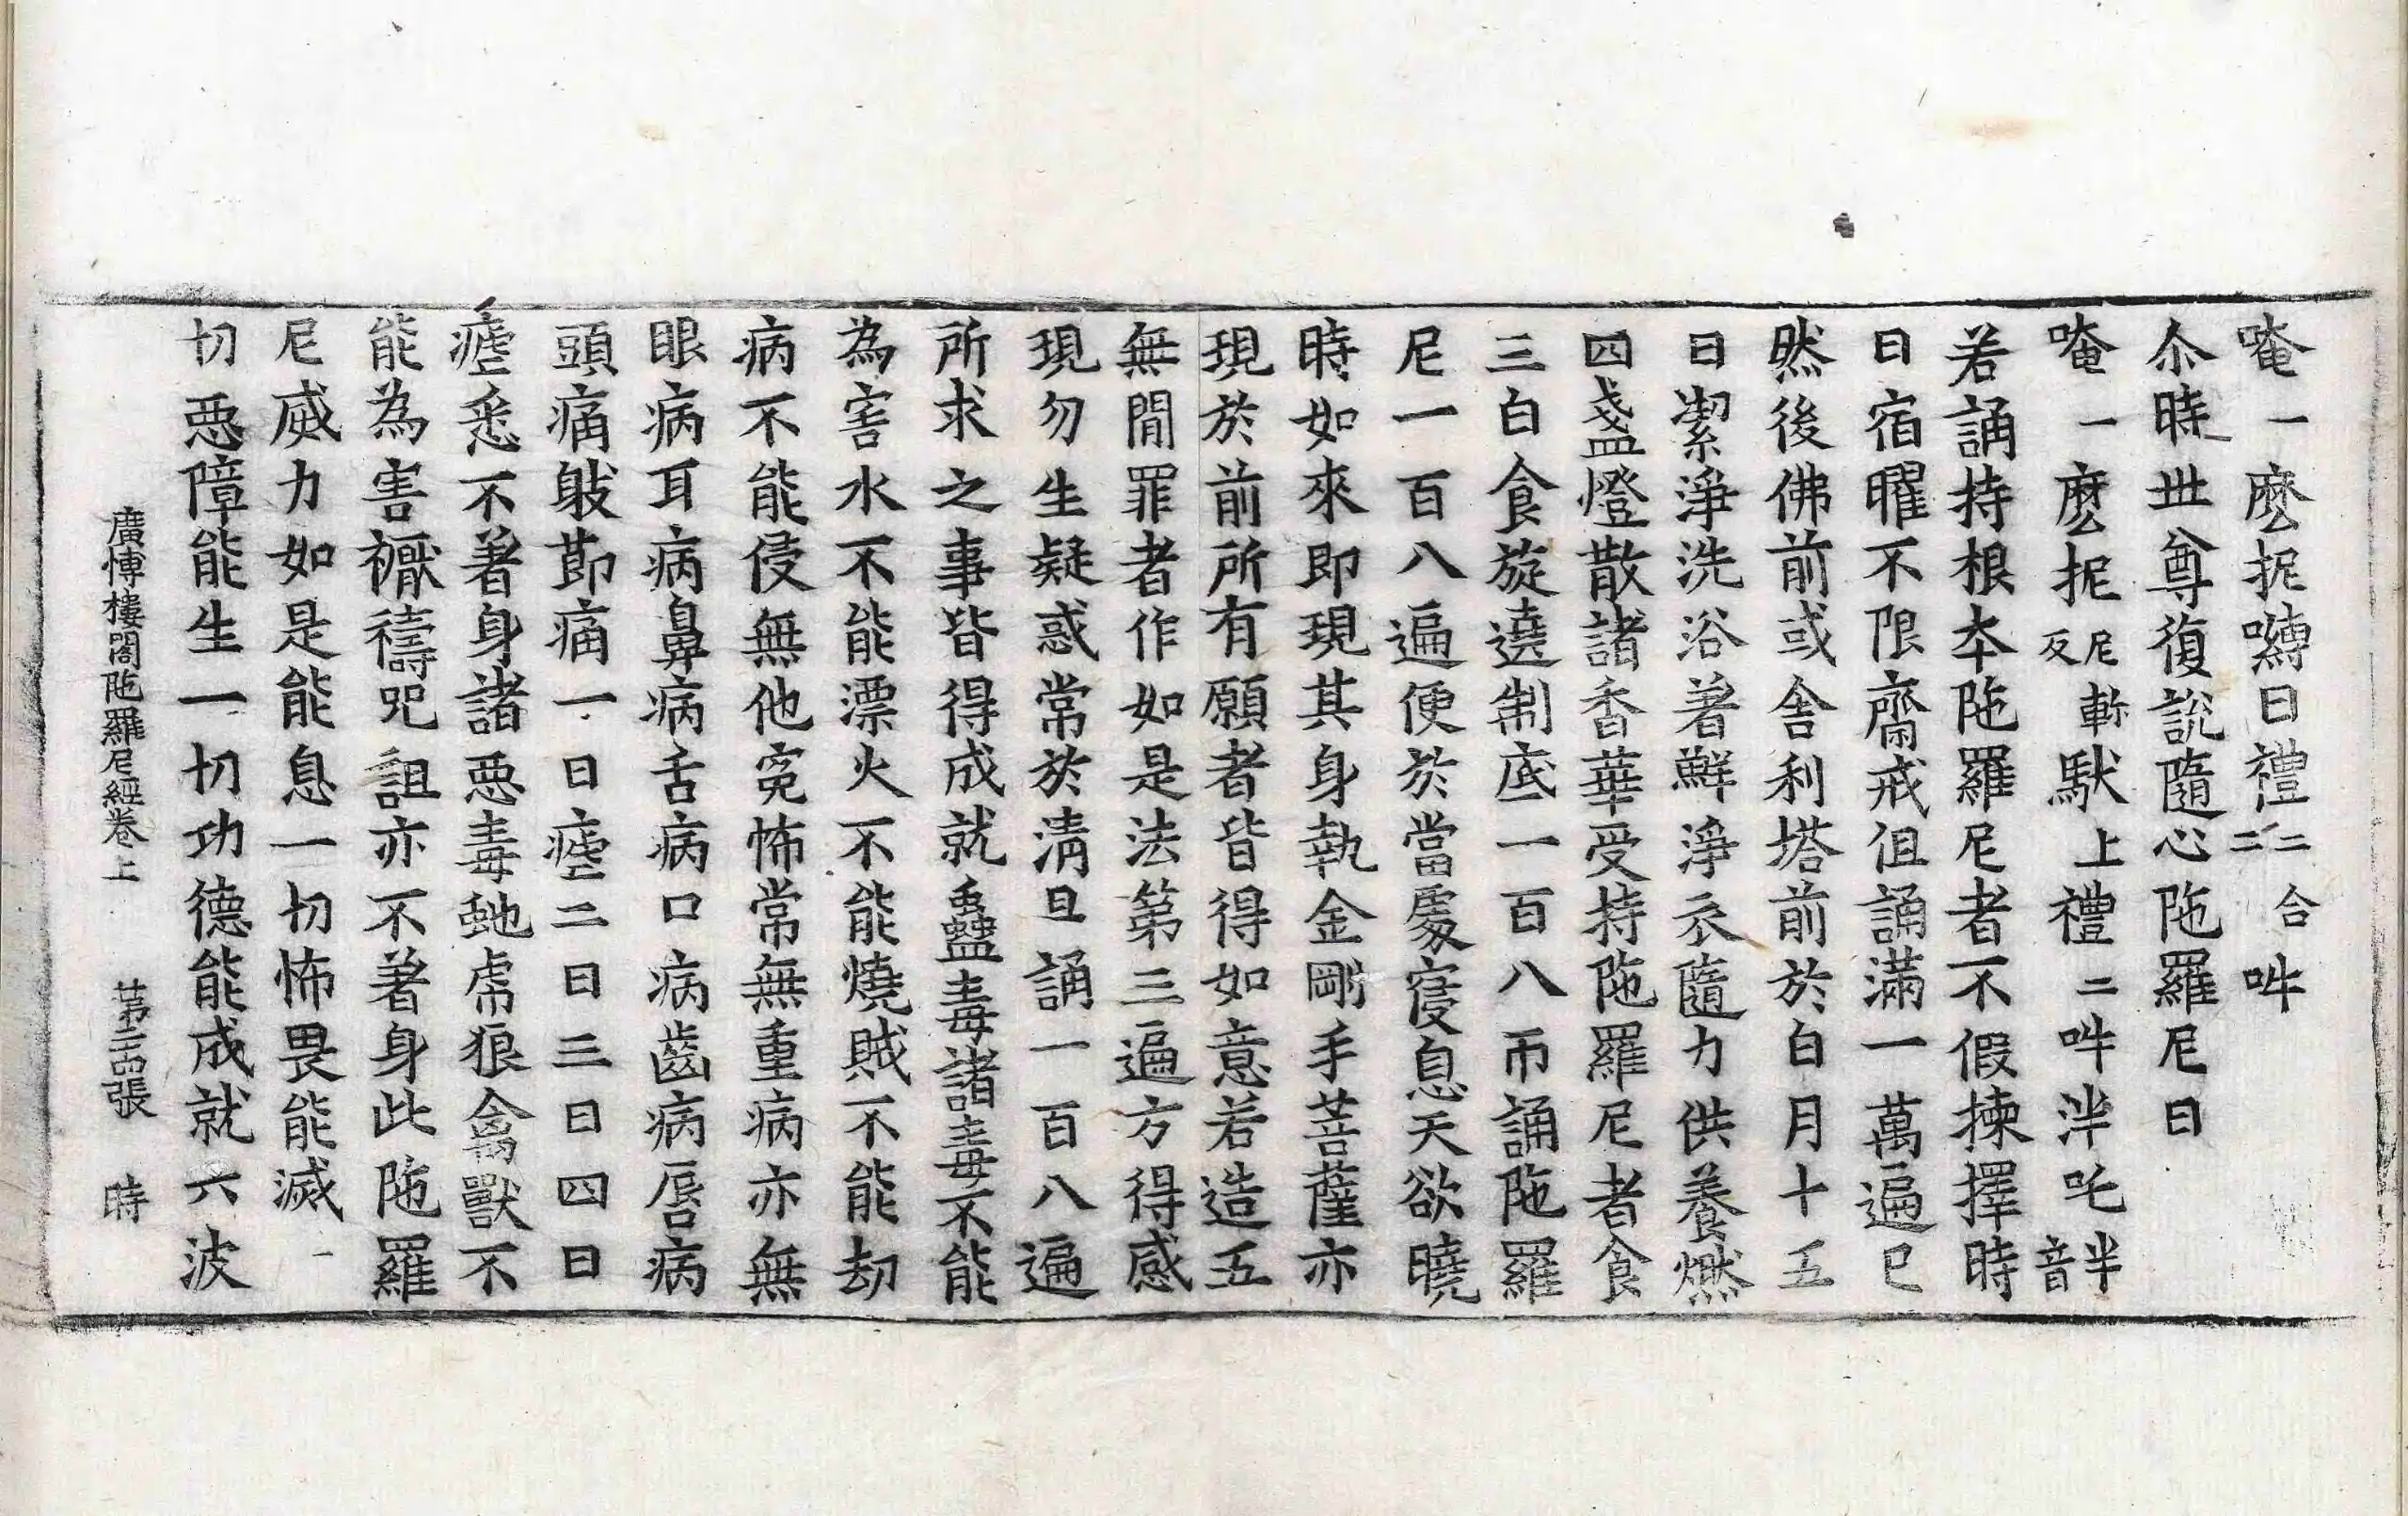 唵一麽抳嚩日禮二合二吽
尒時世尊復說隨心陁羅尼曰
唵一麽抳尼反𨋢䭾上禮二吽泮吒半音
若誦持根本陁羅尼者不假揀擇時
日宿曜不限齋戒但誦滿一萬遍已
然後佛前或舍利塔前於白月十五
日潔淨洗浴著鮮淨衣隨力供養燃
四盞燈散諸香華受持陁羅尼者食
三白食旋遶制底一百八帀誦陁羅
尼一百八遍便於當處寑息天欲曉
時如來即現其身執金剛手菩薩亦
現於前所有願者皆得如意若造五
無間罪者作如是法第三遍方得感
現勿生疑惑常於清旦誦一百八遍
所求之事皆得成就蠱毒諸毒不能
為害水不能漂火不能燒賊不能劫
病不能侵無他寃怖常無重病亦無
眼病耳病鼻病舌病口病齒病唇病
頭痛躰節痛一日瘧二日三日四日
瘧悉不著身諸惡毒虵虎狼禽獸不
能為害禰禱呪詛亦不著身此陁羅
尼威力如是能息一切怖畏能滅一
切惡障能生一切功德能成就六波
廣博樓閣陁羅尼經卷上 第二四張 時